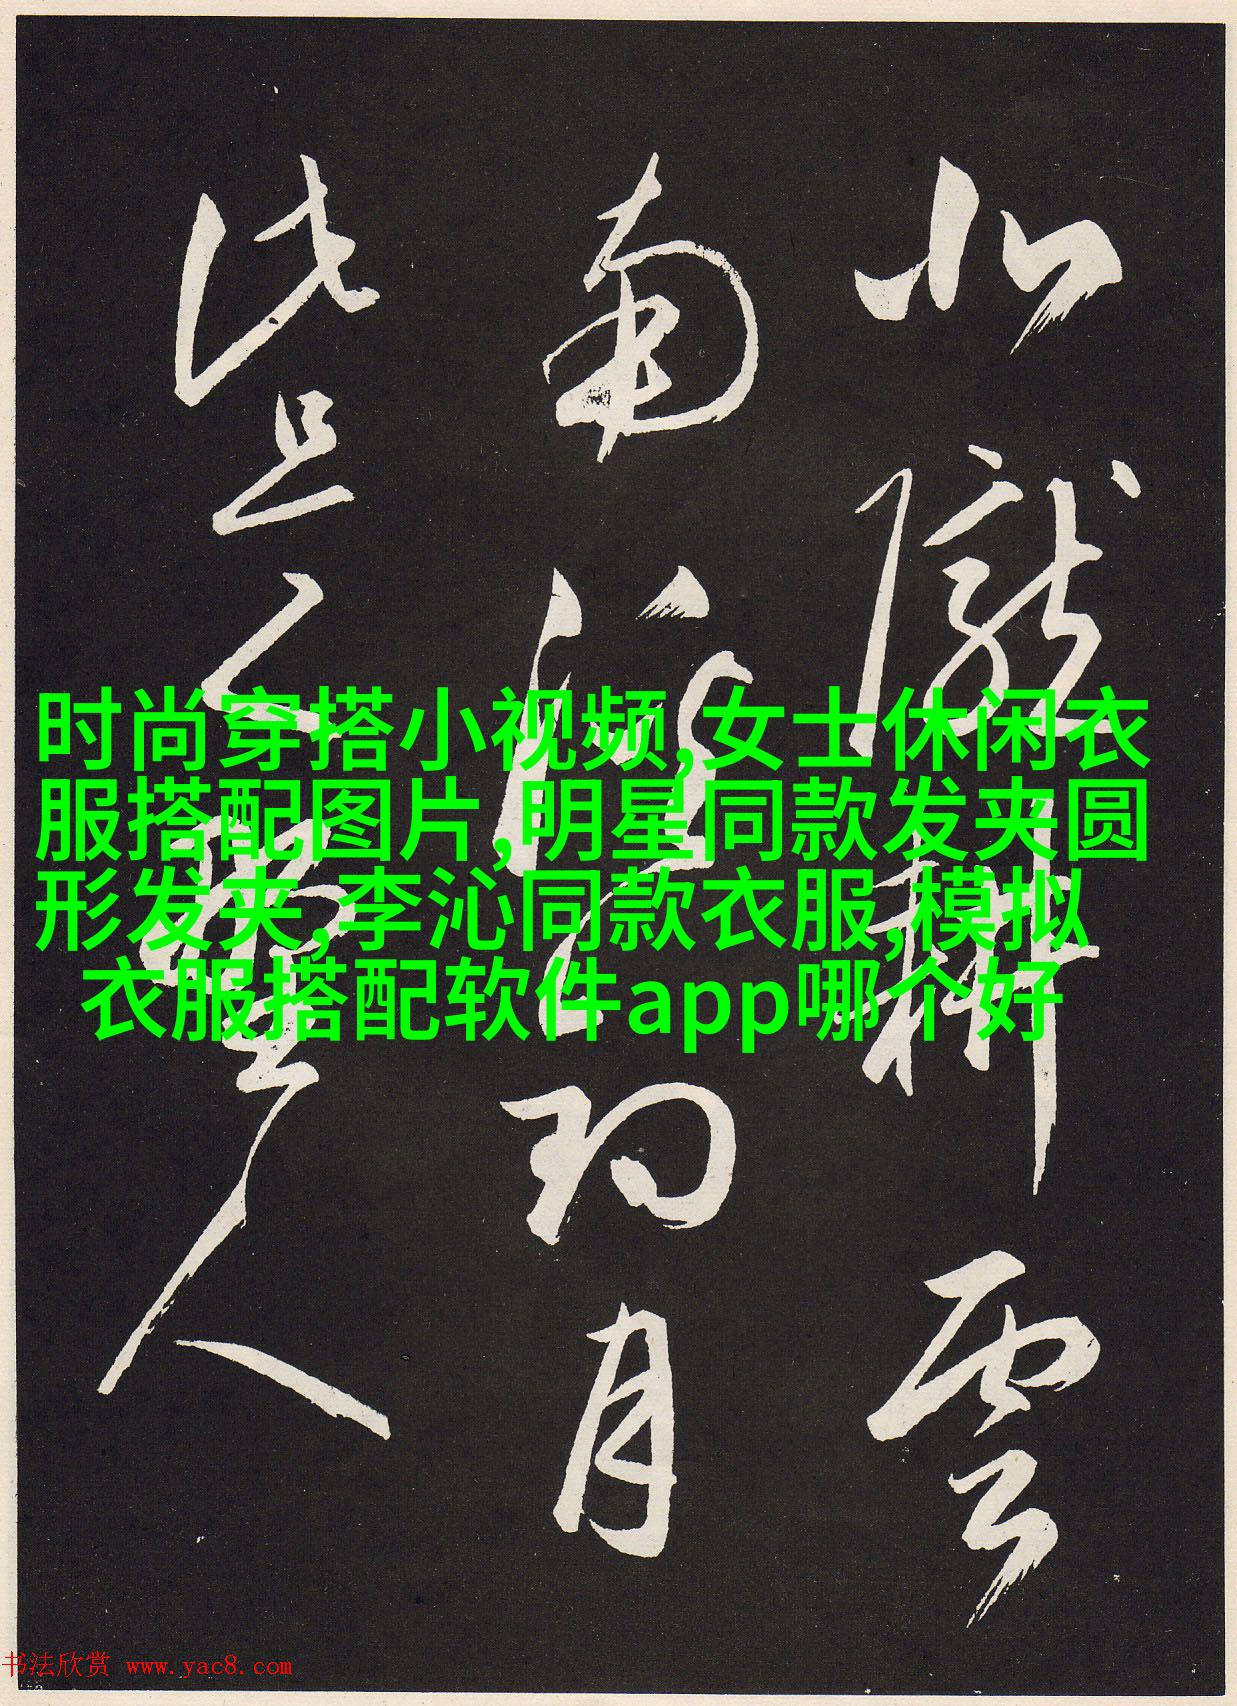 北隴耕雲
南溪釣月
此是野人
时尚穿搭小视频,女士休闲衣
服搭配图片,明星同款发夹圆
形发夹,李沁同款衣服,模拟
衣服搭配软件app哪个好
书法欣赏 www.yac8.com